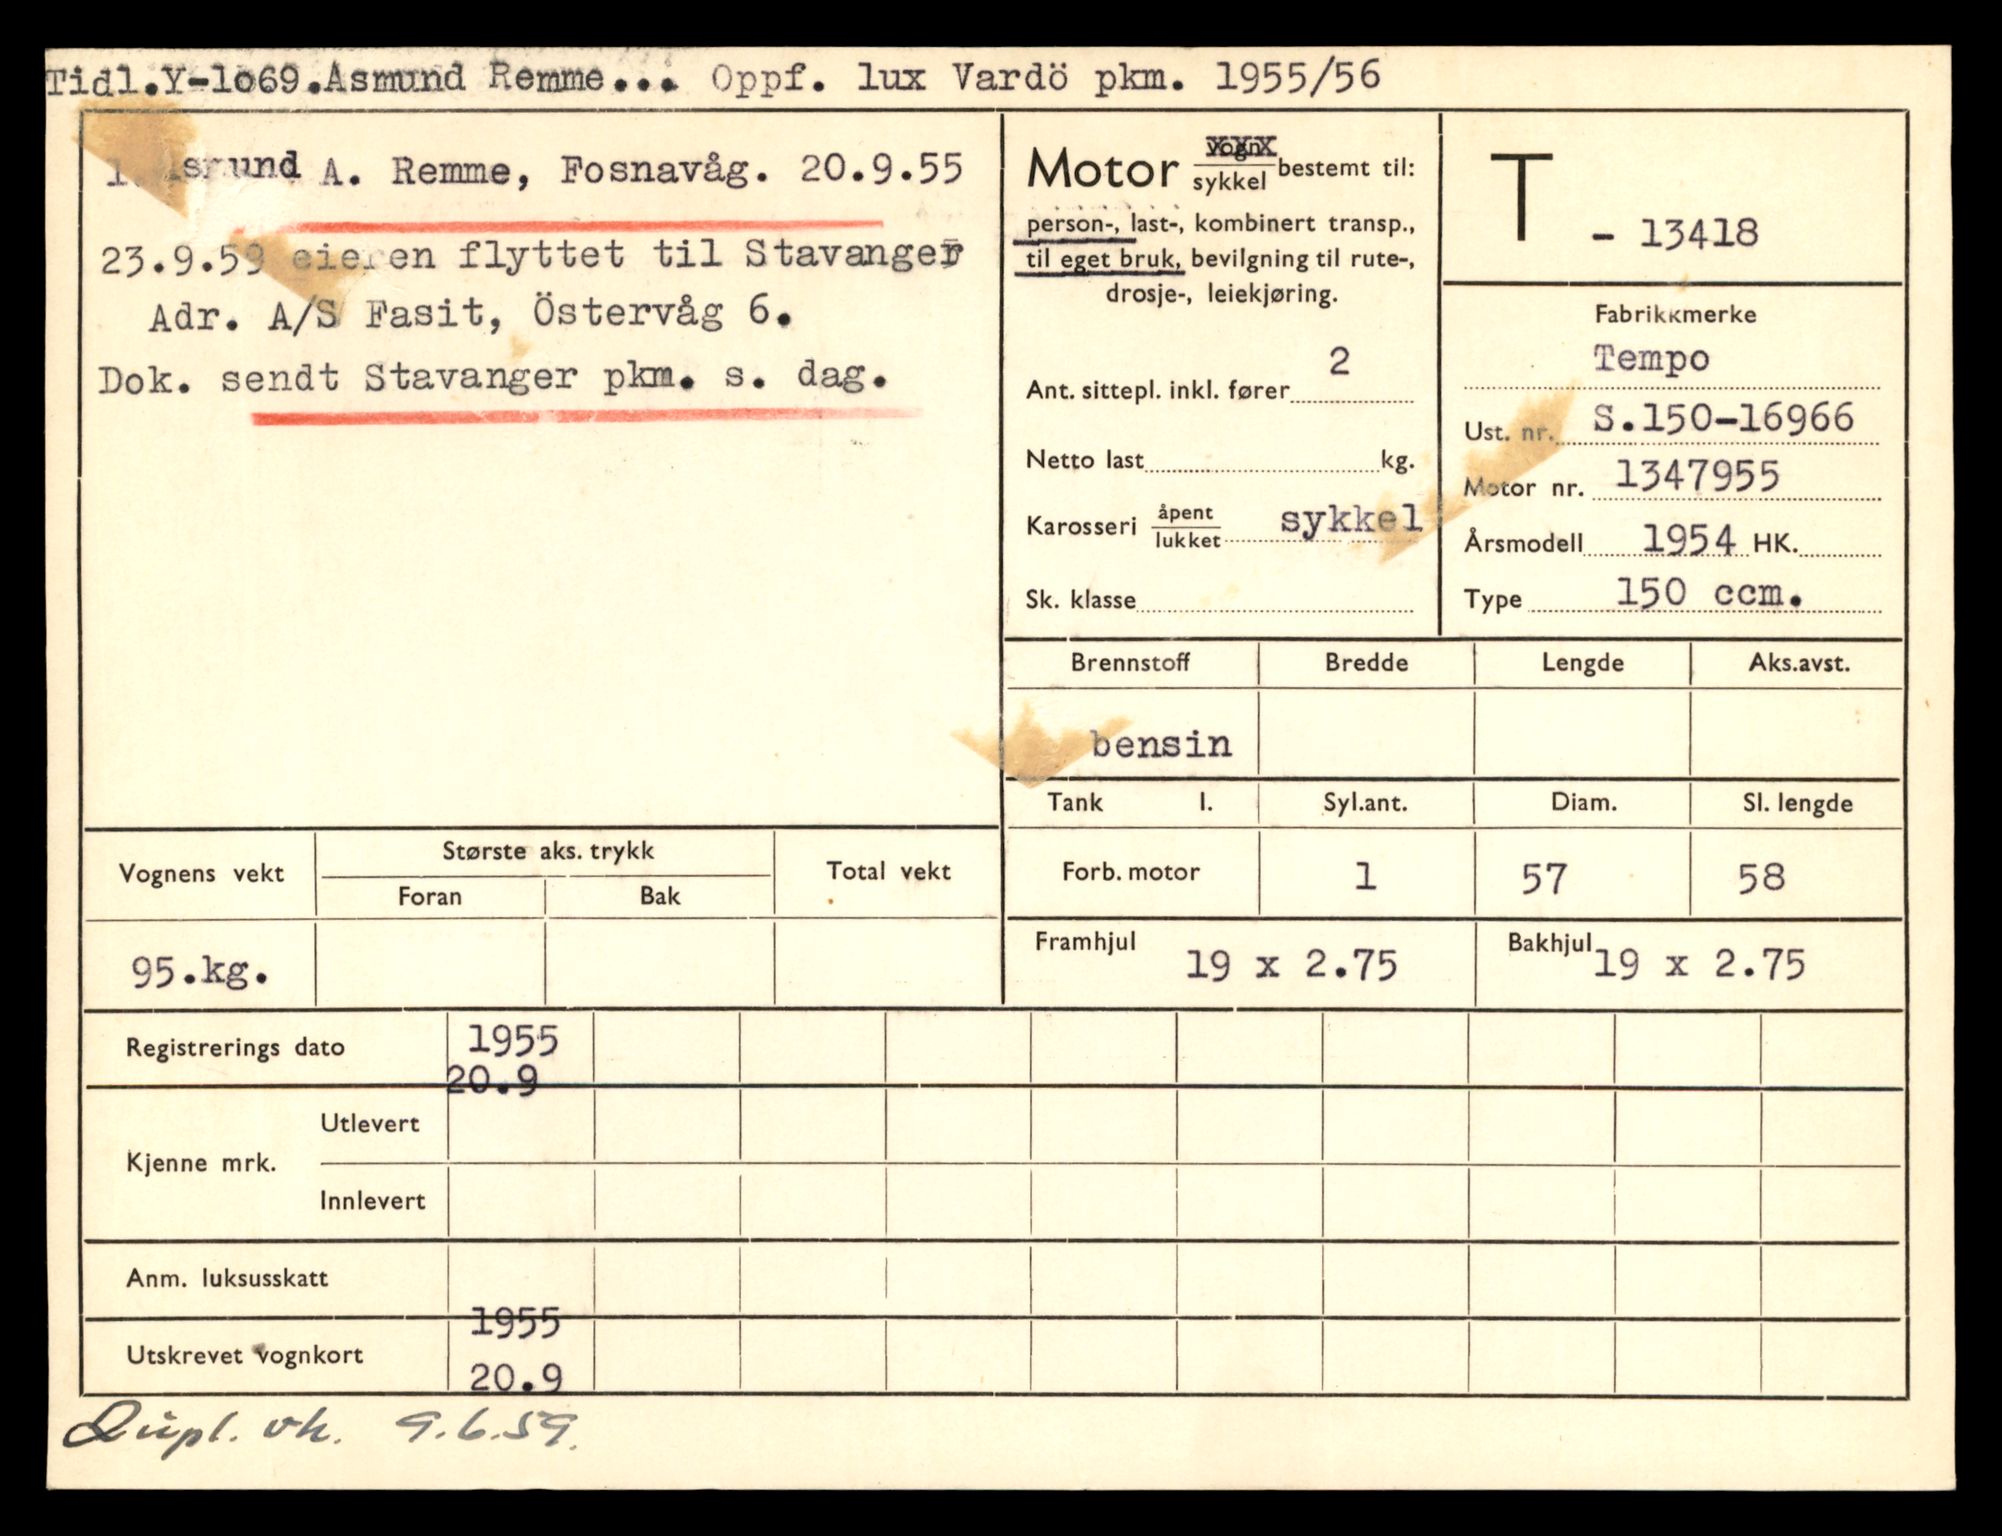 Tidl.Y-1o69.Asmund Remme... Oppf. lux Vardö pkm. 1955/56
1. Asmund A. Remme, Fosnavåg. 20.9.55
23.9.59 eieren flyttet til Stavanger
Adr. A/S Fasit, Östervåg 6.
Dok. sendt Stavanger pkm. s. dag.
Motor vogn sykkel bestemt til:
person-, last-, kombinert transp.,
til eget bruk, bevilgning til rute-,
drosje-, leiekjøring.
Ant. sittepl. inkl. fører 2
Netto last kg.
Karosseri åpent lukket sykkel
Sk. klasse
T - 13418
Fabrikkmerke
Tempo
Ust. nr. S.150-16966
Motor nr. 1347955
Årsmodell 1954 HK.
Type 150 ccm.
Brennstoff Bredde Lengde Aks.avst.
bensin
Tank l. Syl.ant. Diam. Sl. lengde
Forb. motor 1 57 58
Framhjul 19 x 2.75 Bakhjul 19 x 2.75
Vognens vekt Største aks. trykk Total vekt
Foran Bak
95.kg.
Registrerings dato 1955
20.9
Kjenne mrk. Utlevert
Innlevert
Anm. luksusskatt
Utskrevet vognkort 1955
20.9
Dupl. vk. 9.6.59.